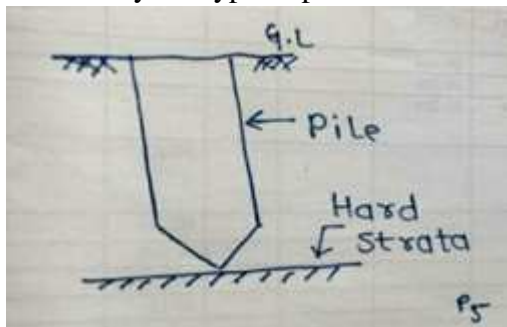 G.L
Pile
Hard
Strata
P5